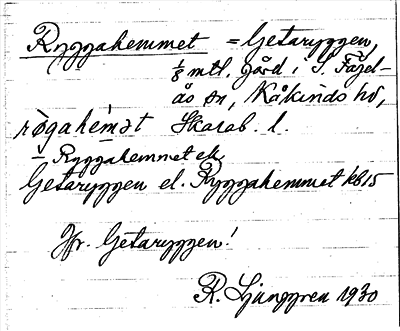 Ryggahemmet = Getaryggen,
1/8 mtl. gård i S. Fågel-
ås sn, Kåkinds hd,
røgahemət Skarab. l.
– Ryggahemmet el.
Getaryggen el. Ryggahemmet kb 15
Jfr. Getaryggen!
R. Ljunggren 1930